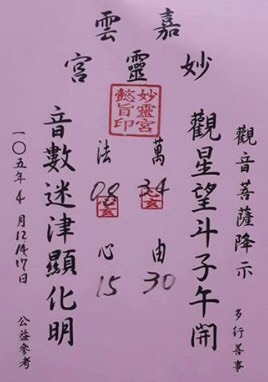 嘉雲
妙靈宮
妙靈宮
懿旨印
觀音菩薩降示 多行善事
觀星望斗子午開
萬 34 玄 由 30
法 08 玄 心 15
音數迷津顯化明
一〇五年4月12.14.17日 公益參考